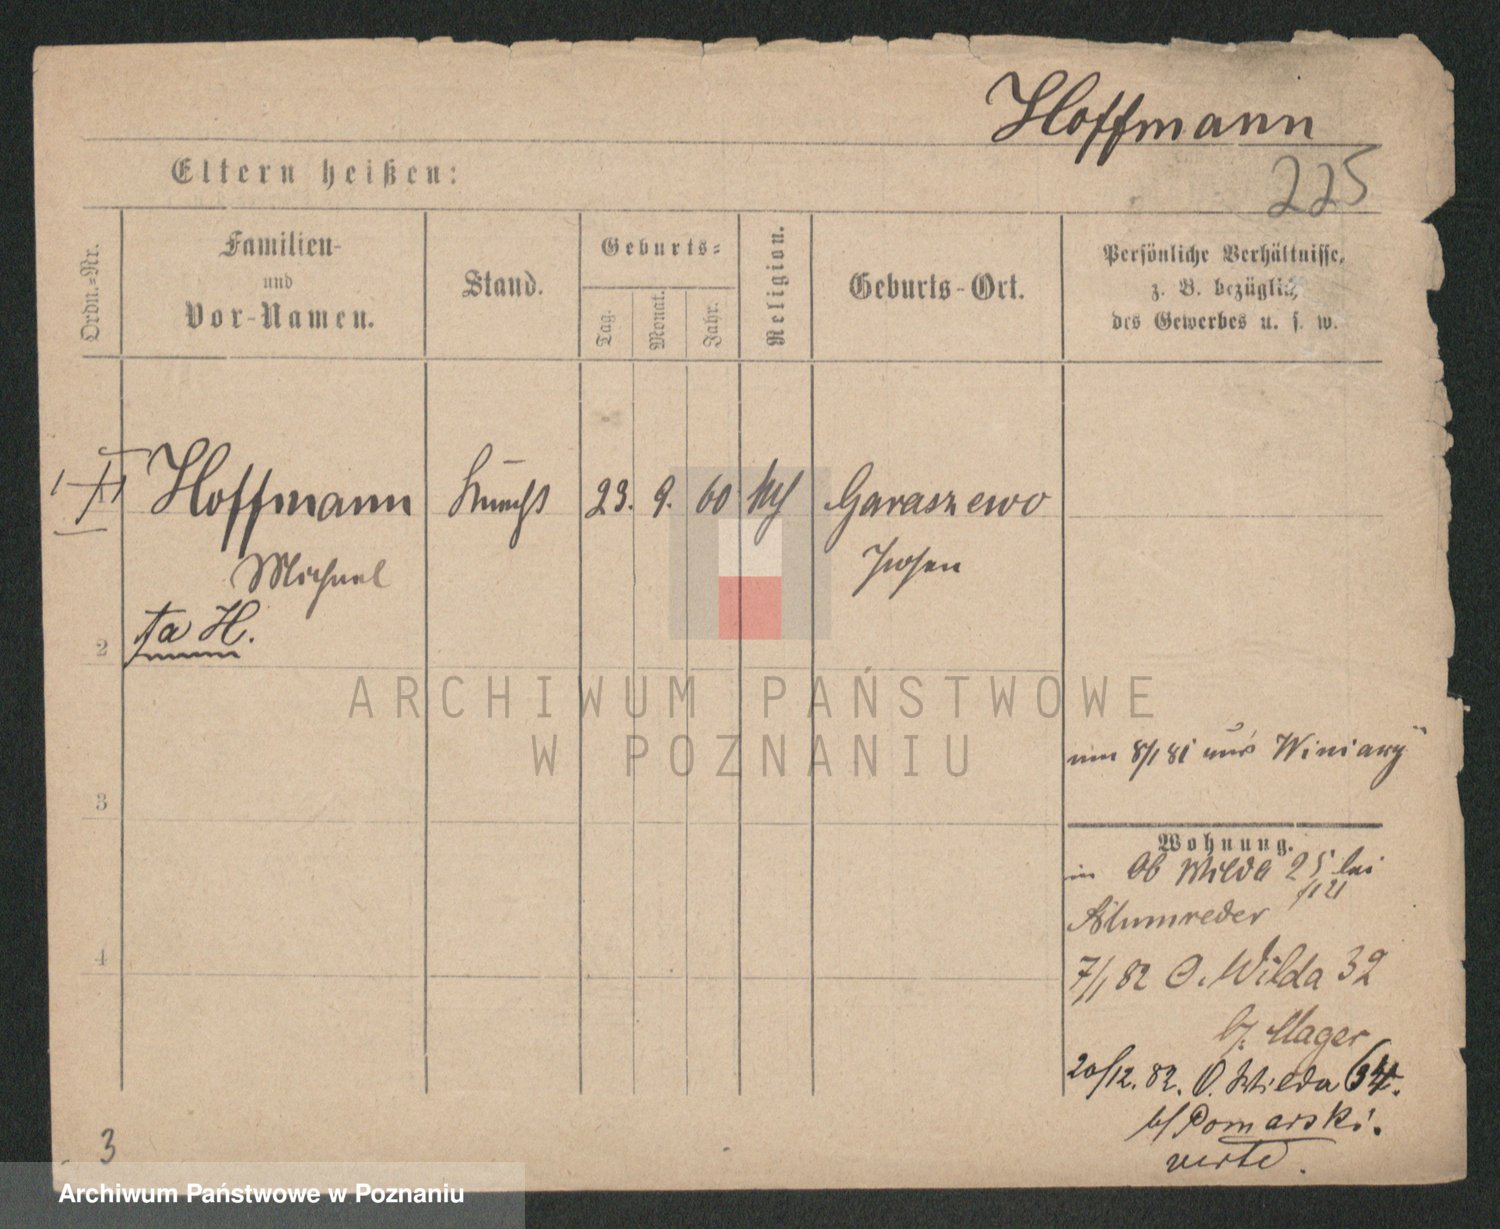 Hoffmann
225
Eltern heißen:
Ordn.-Nr.
Familien-
und
Vor-Namen.
Stand.
Geburts-
Tag.
Monat.
Jahr.
Religion.
Geburts-Ort.
Persönliche Verhältnisse,
z. B. bezüglich
des Gewerbes u. s. w.
Hoffmann Knecht 23. 9. 60 kth Garaszewo
Michael Posen
H.
2
ARCHIWUM PAŃSTWOWE
W POZNANIU
8/1 81 aus Winiary
3
Wohnung.
Ob Wilda 25 bei
Blumreder
4
7/1 82 O. Wilda 32
b/ Mager
20/12. 82. O. Wilda 34.
b/ Pomarski.
verte.
3
Archiwum Państwowe w Poznaniu